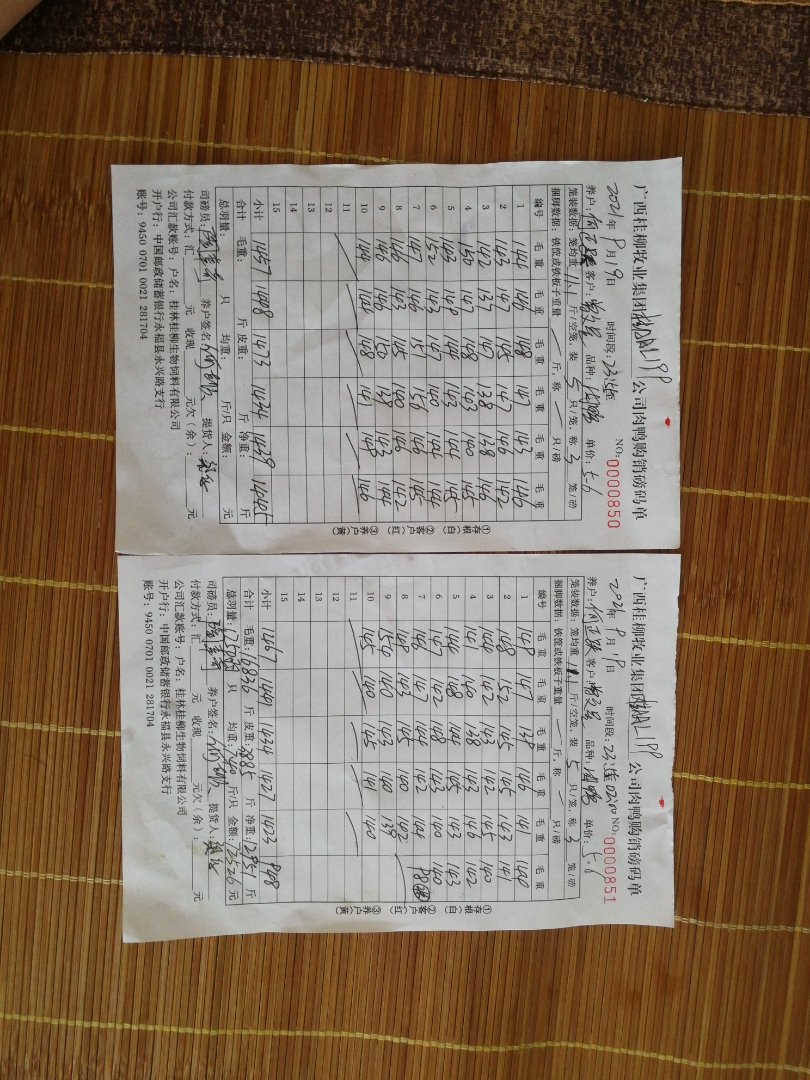 广西桂柳牧业集团 公司肉鸭购销磅码单
2021年9月19日 时间段: NO: 0000850
养户: 客户: 品种: 单价: 5.6
笼装数据: 笼均重 11.1 斤/空笼, 装 5 只/笼, 称 3 笼/磅
捆脚数据: 铁筐或铁板子重量 斤, 称 只/磅
编号 毛重 毛重 毛重 毛重 毛重 毛重
1 144 147 148 147 143 140
2 143 146 145 147 146 142
3 142 137 140 138 138 146
4 150 147 148 143 140 145
5 143 142 144 143 144 145
6 152 143 147 140 144 144
7 147 146 151 156 146 145
8 146 143 145 140 146 142
9 146 146 150 139 143 144
10 144 144 148 141 149 140
11
12
13
14
15
小计 1457 1498 1473 1434 1439
合计 毛重: 斤 皮重: 斤 净重: 斤
总羽量: 只 均重: 斤/只 金额: 元
司磅员: 养户签名: 提货人:
付款方式: 汇 元 收现 元欠(余): 元
公司汇款账号: 户名: 桂林桂柳生物饲料有限公司
开户行: 中国邮政储蓄银行永福县永兴路支行
账号: 9450 0701 0021 281704
①存根(白) ②客户(红) ③养户(黄)
广西桂柳牧业集团 公司肉鸭购销磅码单
2021年9月19日 时间段: NO: 0000851
养户: 客户: 品种: 单价: 5.6
笼装数据: 笼均重 11.1 斤/空笼, 装 5 只/笼, 称 3 笼/磅
捆脚数据: 铁筐或铁板子重量 斤, 称 只/磅
编号 毛重 毛重 毛重 毛重 毛重 毛重
1 149 147 139 146 141 140
2 148 152 145 145 143 141
3 144 142 143 142 145 140
4 141 140 138 143 146 142
5 144 148 144 145 143 143
6 147 142 148 143 140 140
7 146 147 144 142 144
8 148 143 145 140 142
9 150 140 143 140 139
10 145 140 145 141 140
11
12
13
14
15
小计 1467 1449 1434 1427 1423 848
合计 毛重: 16836 斤 皮重: 3885 斤 净重: 12951 斤
总羽量: 只 均重: 斤/只 金额: 72526 元
司磅员: 养户签名: 提货人:
付款方式: 汇 元 收现 元欠(余): 元
公司汇款账号: 户名: 桂林桂柳生物饲料有限公司
开户行: 中国邮政储蓄银行永福县永兴路支行
账号: 9450 0701 0021 281704
①存根(白) ②客户(红) ③养户(黄)